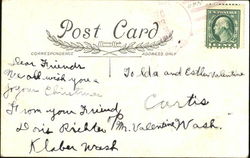 Post Card
CORRESPONDENCE
ADDRESS ONLY
Dear Friends
We all wish you a
Joyous Christmas
From your Friend
Doris Richter
Klaber Wash
To Ida and Esther Valentine
Curtis
℅ Mr. Valentine Wash.